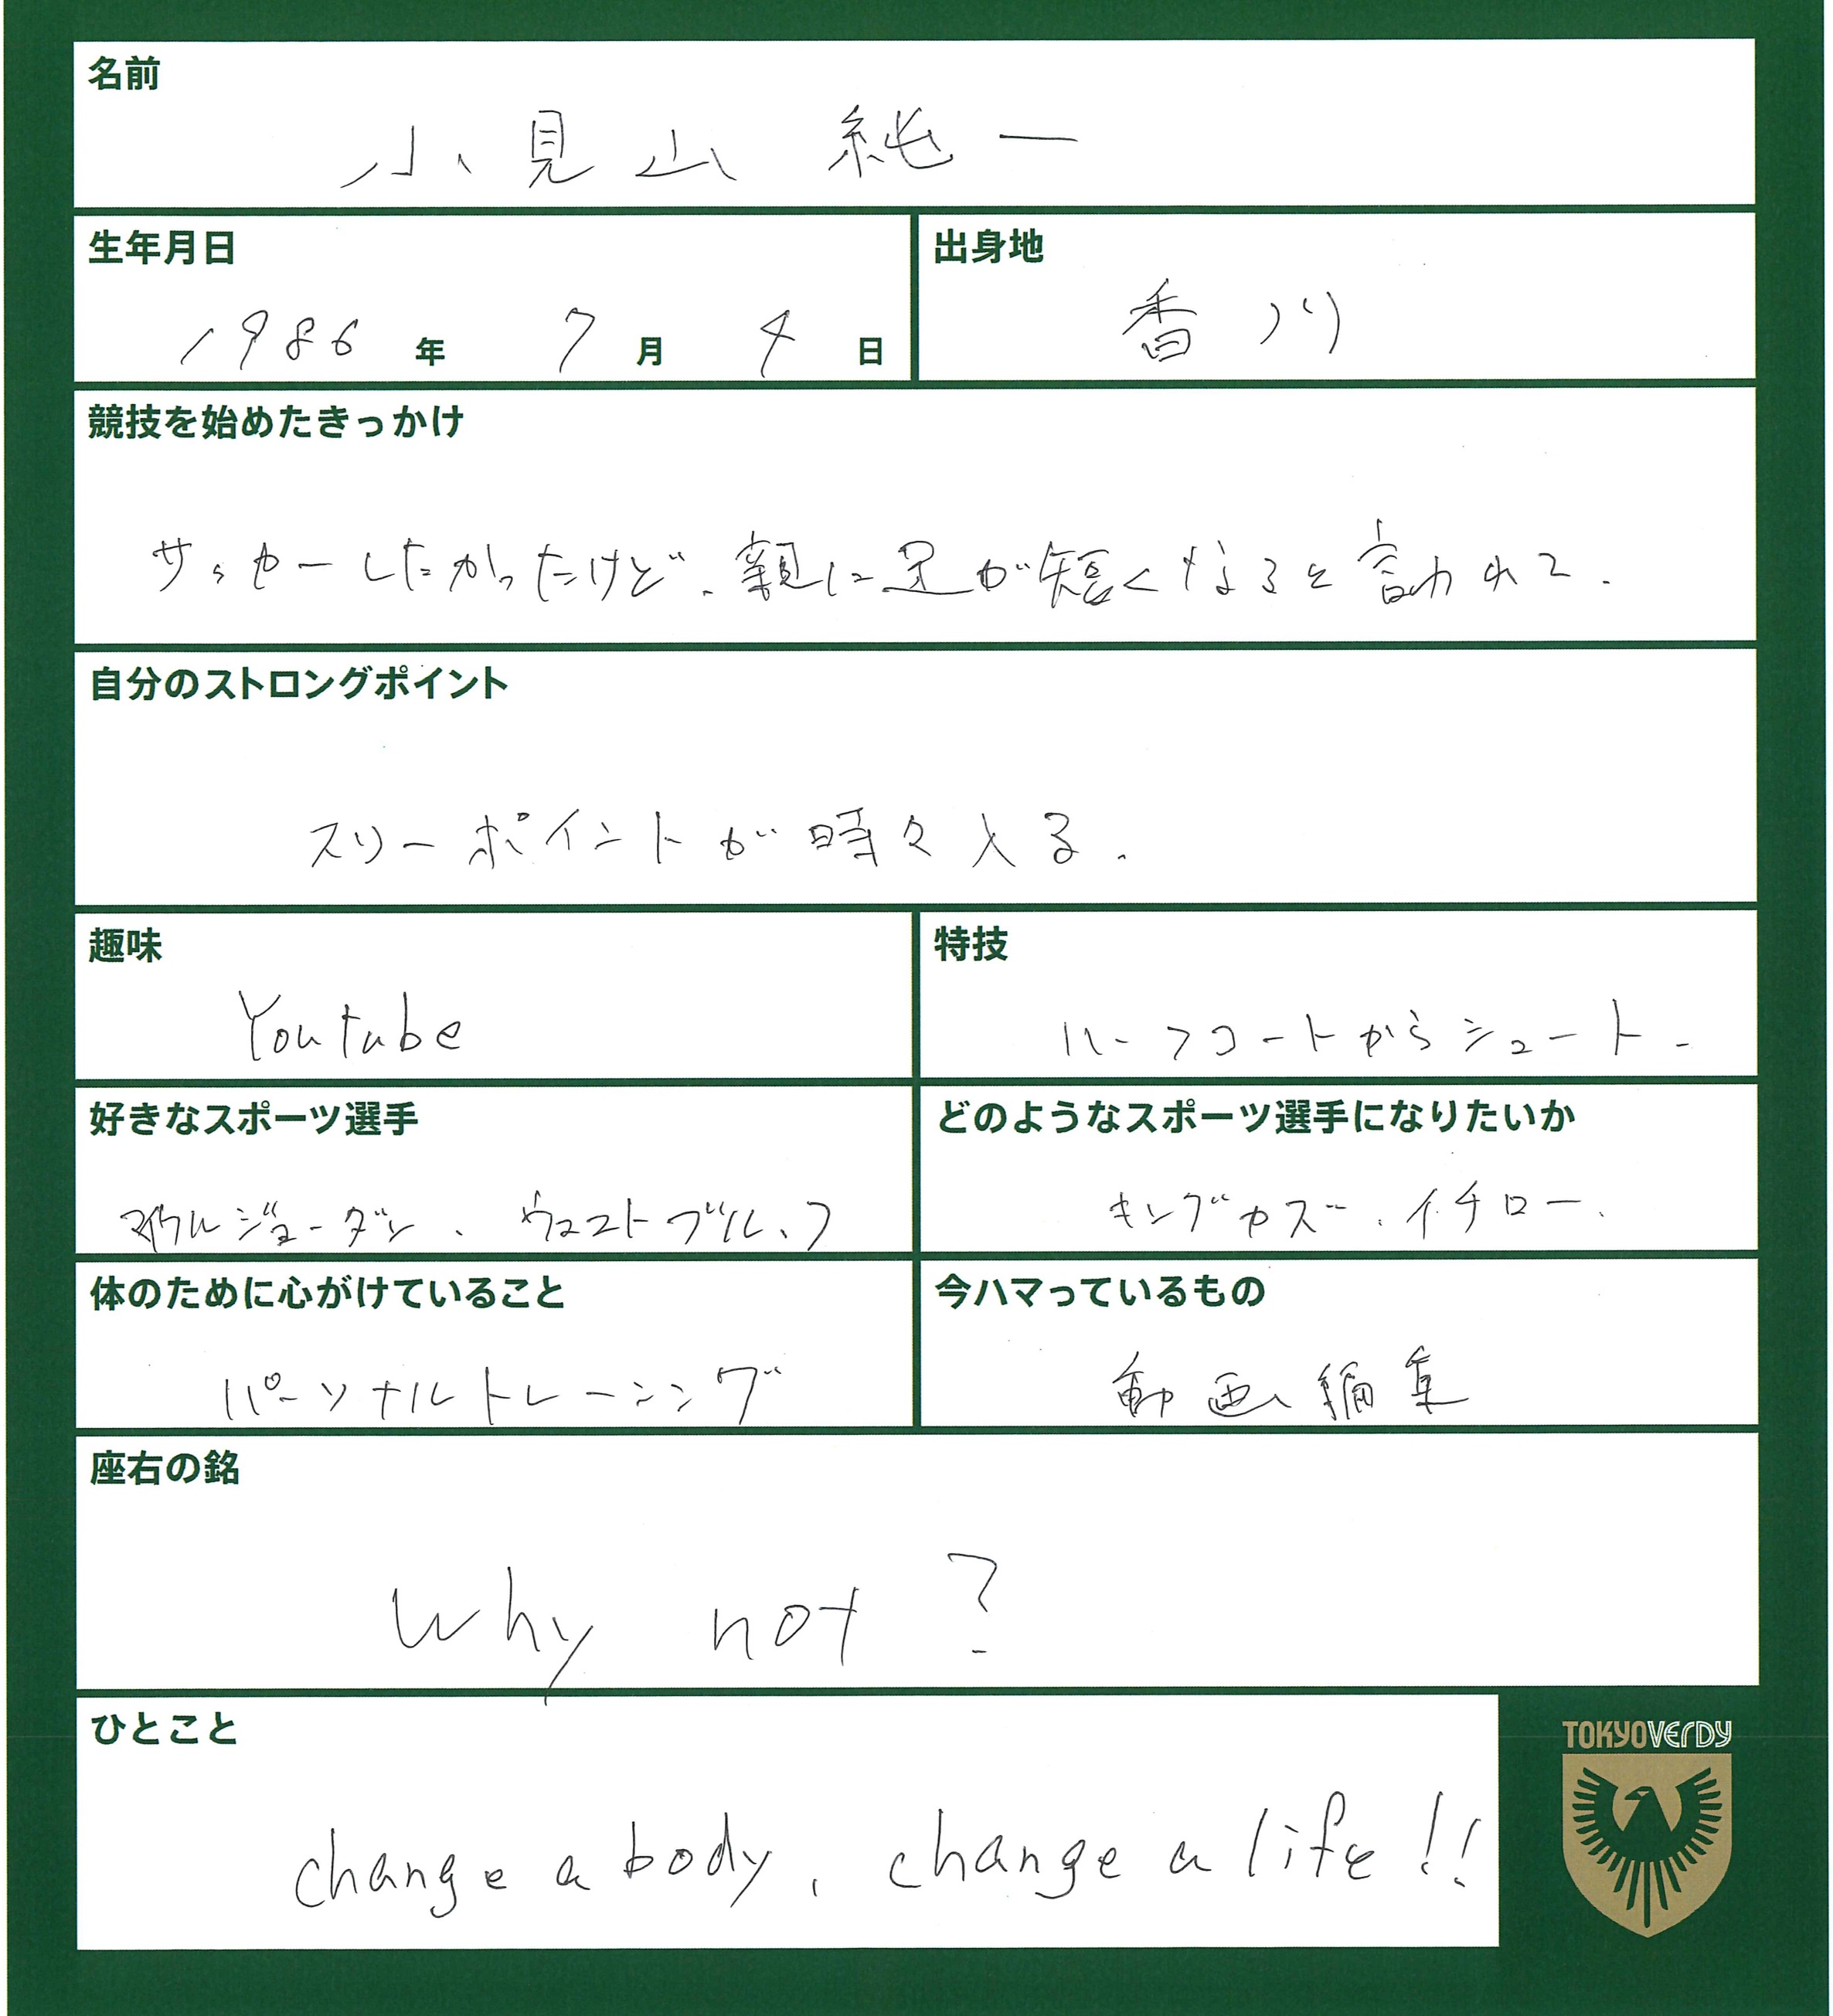 名前
小見山 純一
生年月日
1986年 7月 4日
出身地
香川
競技を始めたきっかけ
サッカーしたかったけど、親に足が短くなると言われて.
自分のストロングポイント
スリーポイントが時々入る.
趣味
Youtube
特技
ハーフコートからシュート.
好きなスポーツ選手
マイケルジョーダン、ウェストブルック
どのようなスポーツ選手になりたいか
キングカズ、イチロー.
体のために心がけていること
パーソナルトレーニング
今ハマっているもの
動画編集
座右の銘
Why not ?
ひとこと
change a body, change a life!!
TOKYO VERDY